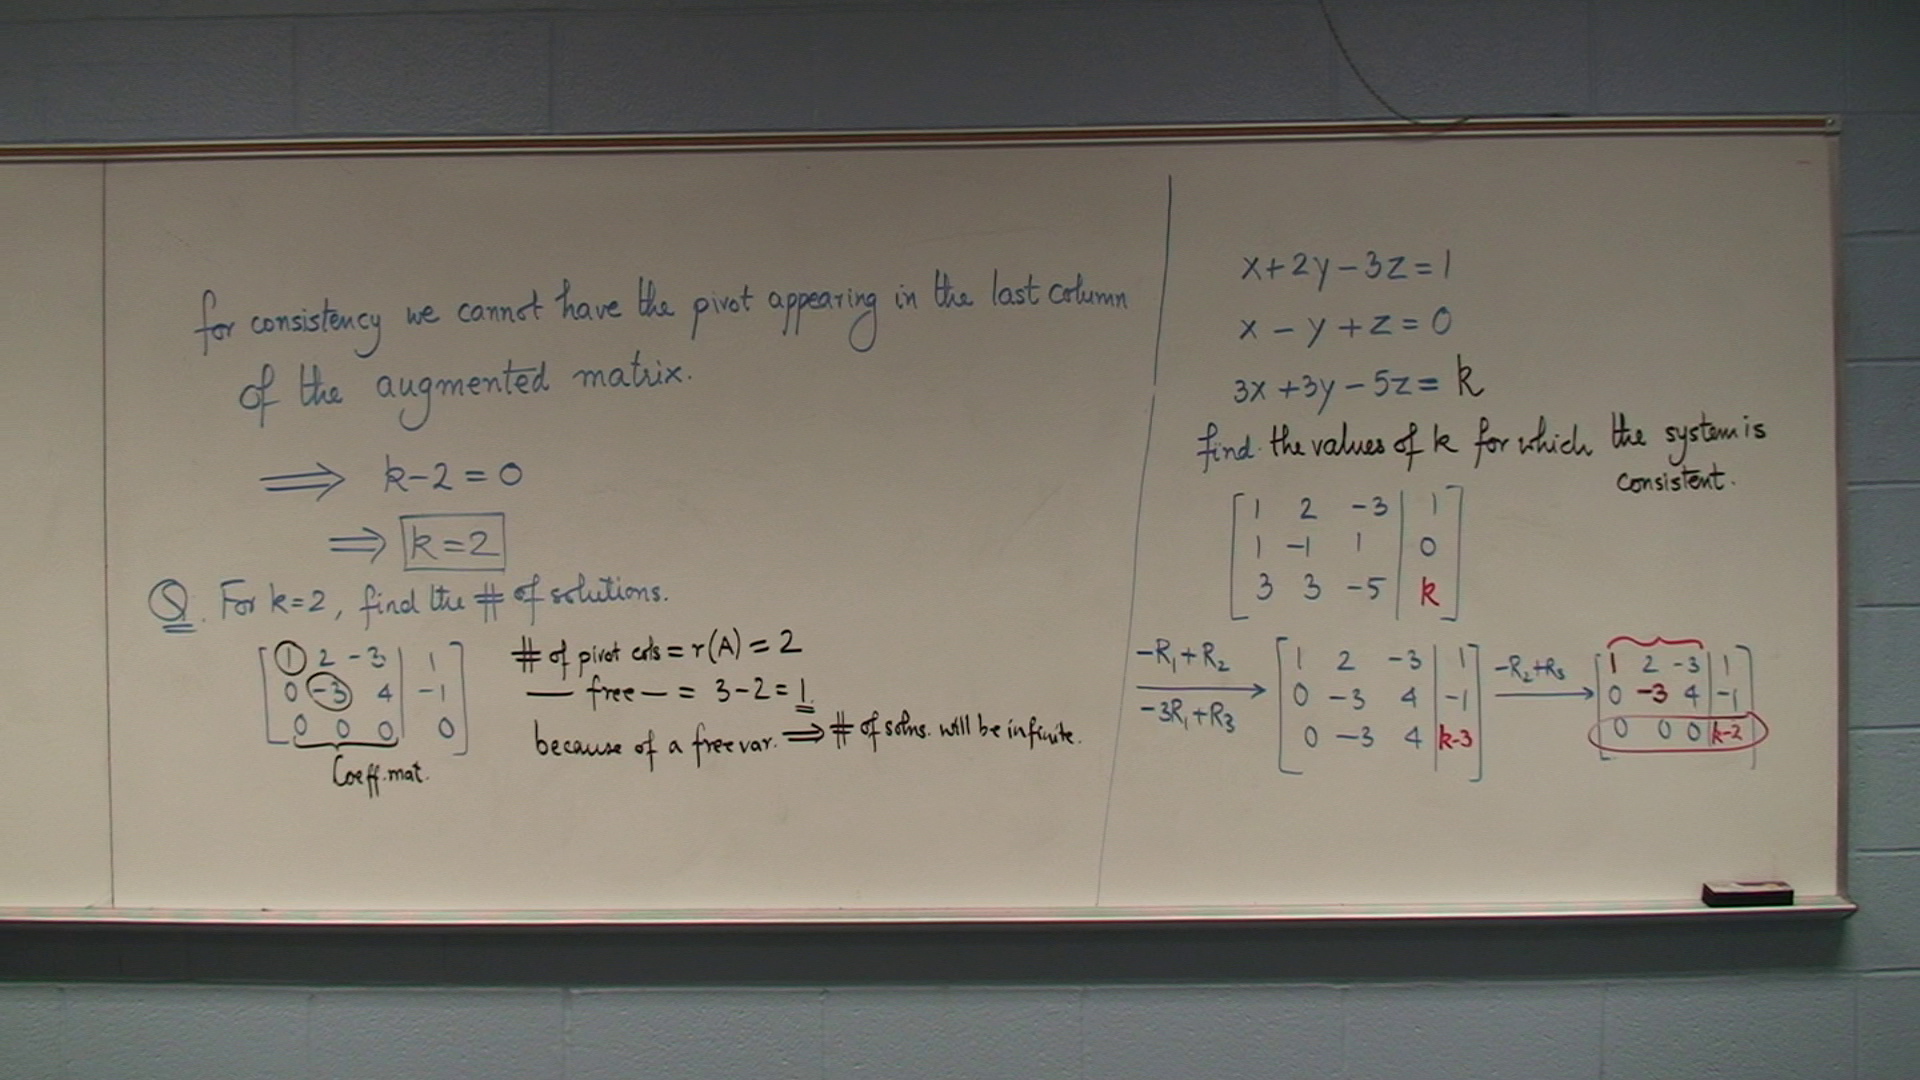 for consistency we cannot have the pivot appearing in the last column
of the augmented matrix.
⟹ k-2 = 0
⟹ k=2
Q. For k=2, find the # of solutions.
[ 1 2 -3 | 1 ]
[ 0 -3 4 | -1 ]
[ 0 0 0 | 0 ]
Coeff. mat.
# of pivot cols = r(A) = 2
— free — = 3-2 = 1
because of a free var. ⟹ # of solns. will be infinite.
x+2y-3z=1
x-y+z=0
3x+3y-5z= k
find the values of k for which the system is
consistent.
[ 1 2 -3 | 1 ]
[ 1 -1 1 | 0 ]
[ 3 3 -5 | k ]
-R₁+R₂
-3R₁+R₃
[ 1 2 -3 | 1 ]
[ 0 -3 4 | -1 ]
[ 0 -3 4 | k-3 ]
-R₂+R₃
[ 1 2 -3 | 1 ]
[ 0 -3 4 | -1 ]
[ 0 0 0 | k-2 ]